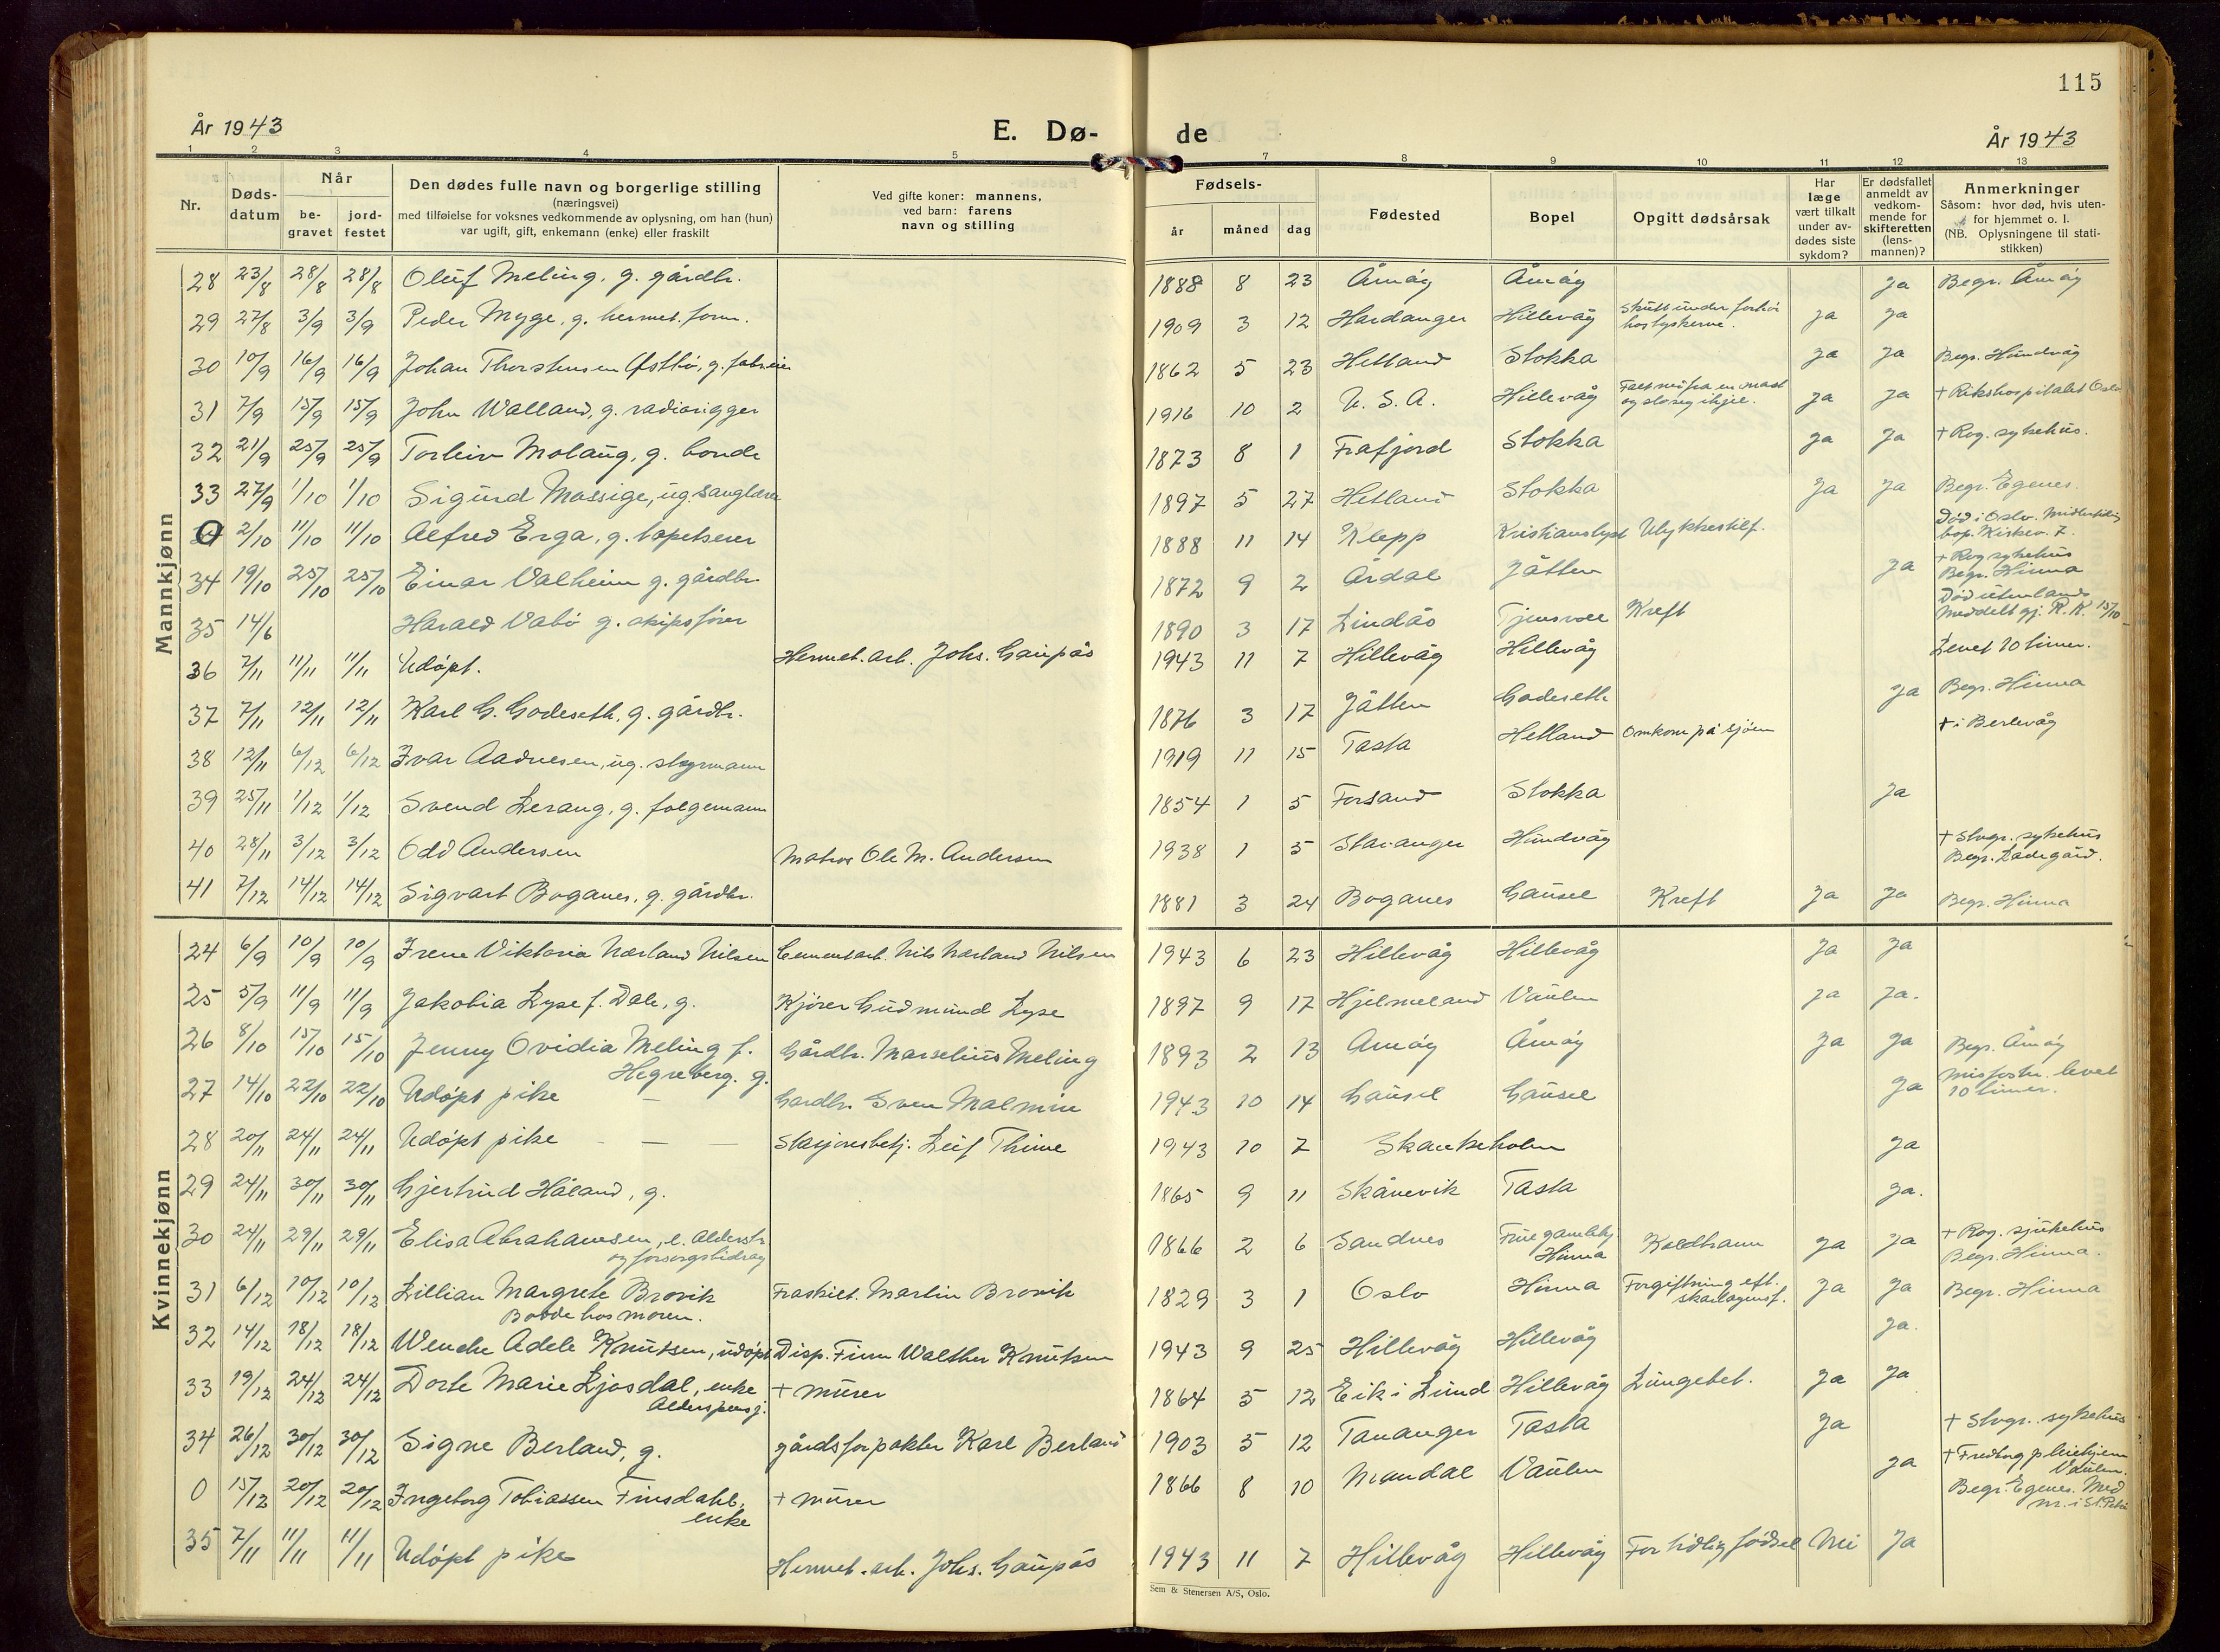 115
År 1943 E. Dø- de År 1943
1 2 3 4 5 7 8 9 10 11 12 13
Nr. Døds-datum Når be-gravet jord-festet Den dødes fulle navn og borgerlige stilling (næringsvei) med tilføielse for voksnes vedkommende av oplysning, om han (hun) var ugift, gift, enkemann (enke) eller fraskilt Ved gifte koner: mannens, ved barn: farens navn og stilling Fødsels- år måned dag Fødested Bopel Opgitt dødsårsak Har læge vært tilkalt under av-dødes siste sykdom? Er dødsfallet anmeldt av vedkom-mende for skifteretten (lens-mannen)? Anmerkninger Såsom: hvor død, hvis uten-for hjemmet o. l. (NB. Oplysningene til stati-stikken)
Mannkjønn
28 23/8 28/8 28/8 Oluf Meling, g. gårdbr. 1888 8 23 Åmøy Åmøy Ja Begr. Åmøy
29 27/8 3/9 3/9 Peder Myge, g. hermet. form. 1909 3 12 Hardanger Hillevåg Skutt under forhør hos tyskerne. Ja Ja
30 10/9 16/9 16/9 Johan Thorstensen Østbø, g. fabr.eier 1862 5 23 Hetland Stokka Ja Ja Begr. Hundvåg
31 7/9 15/9 15/9 John Walland, g. radiorigger 1916 10 2 U. S. A. Hillevåg Falt ned fra en mast og slo seg ihjel. Ja Ja + Rikshospitalet Oslo
32 21/9 25/9 25/9 Torleiv Molaug, g. bonde 1873 8 1 Frafjord Stokka Ja Ja + Rog. sykehus.
33 27/9 1/10 1/10 Sigurd Massige, ug. sanglærer 1897 5 27 Hetland Stokka Ja Ja Begr. Egenes.
0 2/10 11/10 11/10 Alfred Erga, g. tapetserer 1888 11 14 Klepp Kristianslyst Ulykkestilf. Død i Oslo. Midlertidig bop. Kirkev. 7.
34 19/10 25/10 25/10 Einar Valheim g. gårdbr. 1872 9 2 Årdal Jåtten Ja + Rog sykehus Begr. Hinna
35 14/6 Harald Vabø g. skipsfører 1890 3 17 Lindås Tjensvoll Kreft Død utenlands Meddelt gj. R. K. 15/10
36 7/11 11/11 11/11 Udøpt. Hermet. arb. Johs. Gaupås 1943 11 7 Hillevåg Hillevåg Levet 10 timer.
37 7/11 12/11 12/11 Karl G. Godeseth, g. gårdbr. 1876 3 17 Jåtten Godeseth Ja Begr. Hinna
38 12/11 6/12 6/12 Ivar Aadnesen, ug. styrmann 1919 11 15 Tasta Hetland Omkom på sjøen + i Berlevåg
39 25/11 1/12 1/12 Svend Lerang, g. følgemann 1854 1 5 Forsand Stokka Ja
40 28/11 3/12 3/12 Odd Andersen Matros Ole M. Andersen 1938 1 5 Stavanger Hundvåg + Stvgr. sykehus Begr. Ladegård.
41 7/12 14/12 14/12 Sigvart Boganes, g. gårdbr. 1881 3 24 Boganes Gausel Kreft Ja Ja Begr. Hinna
Kvinnekjønn
24 6/9 10/9 10/9 Irene Viktoria Nærland Nilsen Cementarb. Nils Nærland Nilsen 1943 6 23 Hillevåg Hillevåg Ja Ja
25 5/9 11/9 11/9 Jakobia Lyse f. Dale, g. Kjører Gudmund Lyse 1897 9 17 Hjelmeland Vaulen Ja Ja.
26 8/10 15/10 15/10 Jenny Ovidia Meling f. Hegreberg. g. Gårdbr. Marselius Meling 1893 2 13 Åmøy Åmøy Ja Ja Begr. Åmøy
27 14/10 22/10 22/10 Udøpt pike — Gardbr. Sven Malmin 1943 10 14 Gausel Gausel Ja Misfostr. levet 10 timer.
28 20/11 24/11 24/11 Udøpt pike — — — Stasjonsbetj. Leif Thime 1943 10 7 Skankeholm Ja
29 24/11 30/11 30/11 Gjertrud Håland, g. 1865 9 11 Skånevik Tasta Ja.
30 24/11 29/11 29/11 Elisa Abrahamsen, e. alderstr og forsorgsbidrag 1866 2 6 Sandnes Frue gamlehj. Hinna Koldbrann Ja Ja + Rog. sjukehus Begr. Hinna.
31 6/12 10/12 10/12 Lillian Margrete Brovik Bodde hos moren. Fraskilt. Martin Brovik 1829 3 1 Oslo Hinna Forgiftning eft. skarlagensf. Ja Ja Begr. Hinna
32 14/12 18/12 18/12 Wenche Adele Knutsen, udøpt Disp. Finn Walther Knutsen 1943 9 25 Hillevåg Hillevåg Ja.
33 19/12 24/12 24/12 Dorte Marie Ljosdal, enke Alderspensj. + murer 1864 5 12 Eik i Lund Hillevåg Lungebet. Ja Ja
34 26/12 30/12 30/12 Signe Berland, g. gårdsforpakter Karl Berland 1903 5 12 Tananger Tasta Ja + Stvgr. sykehus
0 15/12 20/12 20/12 Ingeborg Tobiassen Finsdahl, enke + murer 1866 8 10 Mandal Vaulen Ja + Fredborg pleiehjem Vaulen. Begr. Egenes. Med nr. i St. Petri
35 7/11 11/11 11/11 Udøpt pike Hermet. arb. Johs. Gaupås 1943 11 7 Hillevåg Hillevåg For tidlig fødsel Nei Ja
Sem & Stenersen A/S, Oslo.